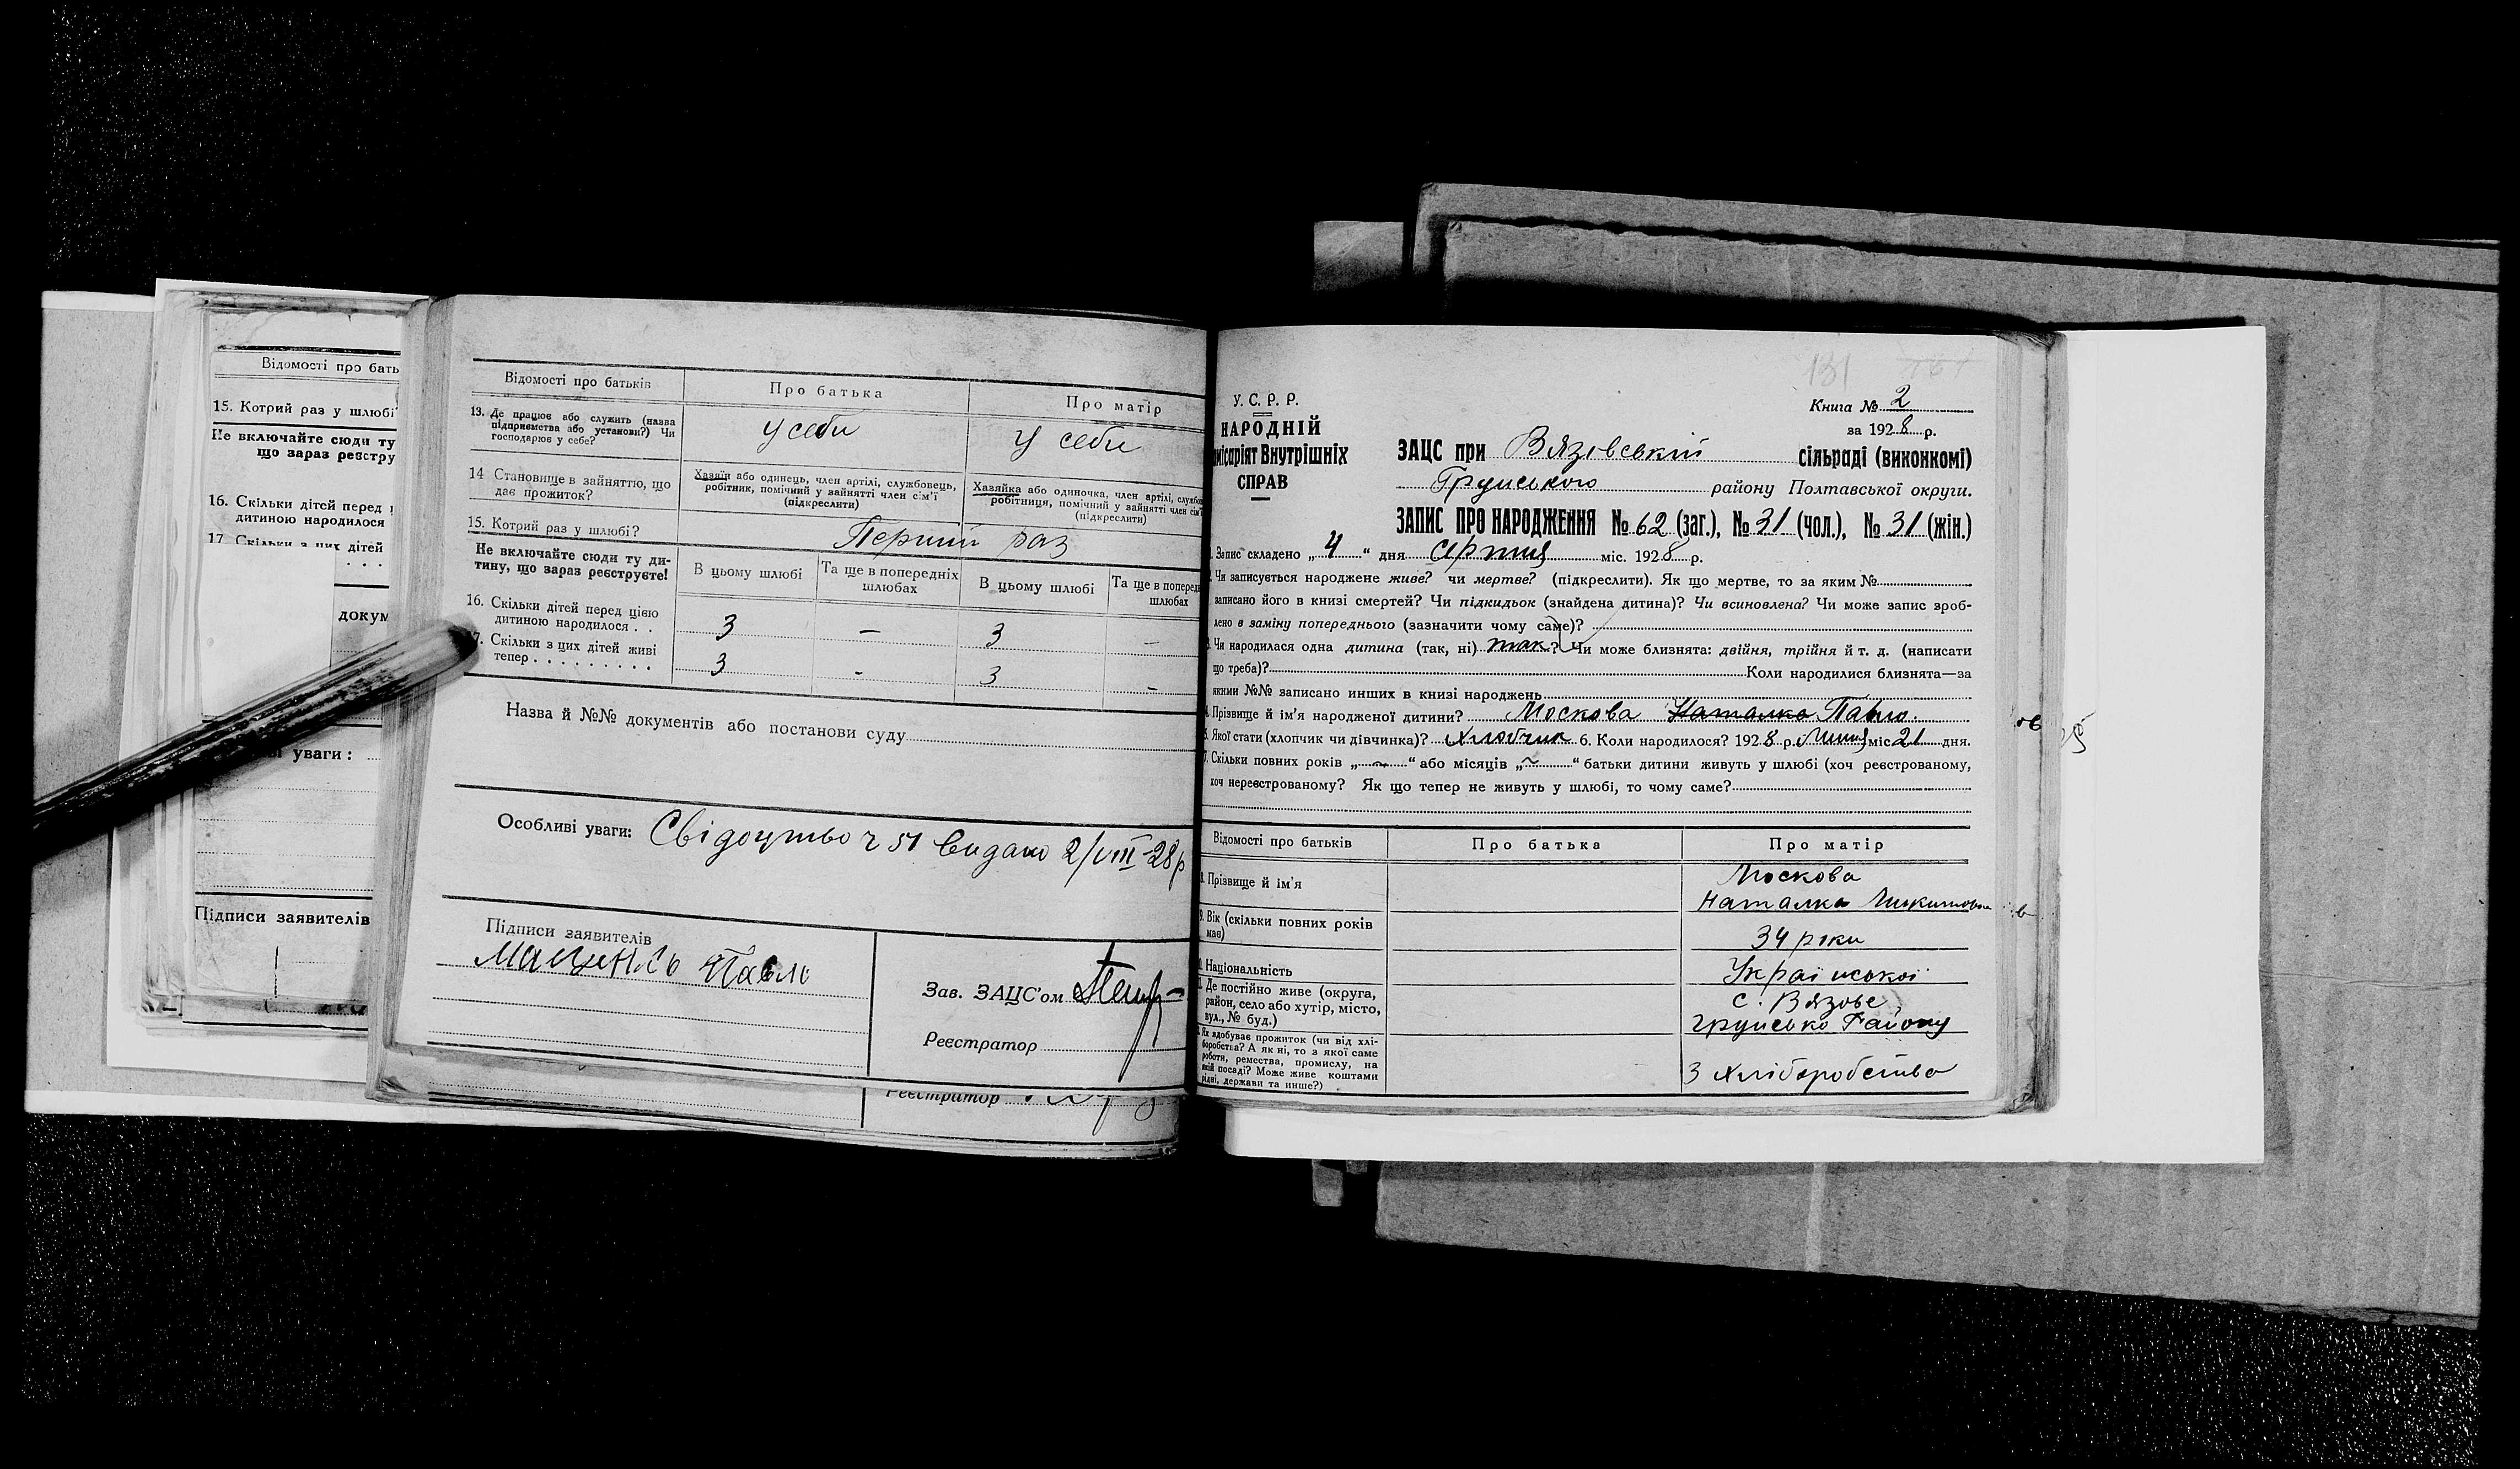 Відомості про бать
15. Котрий раз у шлюбі
Не включайте сюди ту
що зараз реєстру
16. Скільки дітей перед
дитиною народилося
17. Скільки з цих дітей
докум
уваги:
Підписи заявителів
Відомості про батьків
Про батька
Про матір
13. Де працює або служить (назва
підприємства або установи?) Чи
господарює у себе?
у себи
у себи
14 Становище в зайняттю, що
дає прожиток?
Хазяїн або одинець, член артілі, службовець,
робітник, помічний у зайнятті член сім'ї
(підкреслити)
Хазяйка або одиночка, член артілі, служб
робітниця, помічний у зайнятті член сім'
(підкреслити)
15. Котрий раз у шлюбі?
Перший раз
Не включайте сюди ту ди-
тину, що зараз реєструєте!
В цьому шлюбі
Та ще в попередніх
шлюбах
В цьому шлюбі
Та ще в поперед
шлюбах
16. Скільки дітей перед цією
дитиною народилося . .
3 — 3 —
7. Скільки з цих дітей живі
тепер . . . . . . . . .
3 - 3 -
Назва й №№ документів або постанови суду
Особливі уваги: Свідоцтво ч 51 видано 2/VIII-28р
Підписи заявителів
Павло
Зав. ЗАЦС'ом
Реєстратор
Реєстратор
131
Книга № 2
за 1928 р.
У. С. Р. Р.
НАРОДНІЙ
місаріят Внутрішніх
СПРАВ
ЗАЦС при Вязівській сільраді (виконкомі)
Грунського району Полтавської округи.
ЗАПИС ПРО НАРОДЖЕННЯ № 62 (заг.), № 31 (чол.), № 31 (жін.)
Запис складено „4“ дня серпня міс. 1928 р.
Чи записується народжене живе? чи мертве? (підкреслити). Як що мертве, то за яким №
записано його в книзі смертей? Чи підкидьок (знайдена дитина)? Чи всиновлена? Чи може запис зроб-
лено в заміну попереднього (зазначити чому саме)?
Чи народилася одна дитина (так, ні) так? Чи може близнята: двійня, трійня й т. д. (написати
що треба)? Коли народилися близнята—за
якими №№ записано инших в книзі народжень
Прізвище й ім'я народженої дитини? Москова Наталка Павло.
Якої стати (хлопчик чи дівчинка)? Хлобчик 6. Коли народилося? 1928 р. Липня міс 21 дня.
Скільки повних років „~“ або місяців „~“ батьки дитини живуть у шлюбі (хоч реєстрованому,
хоч нереєстрованому? Як що тепер не живуть у шлюбі, то чому саме?
Відомості про батьків
Про батька
Про матір
Прізвище й ім'я
Москова
Наталка Микитовна
9. Вік (скільки повних років
має)
34 роки
Національність
Української
Де постійно живе (округа,
район, село або хутір, місто,
вул., № буд.)
с. Вязове
грунсько Району
Як здобуває прожиток (чи від хлі-
боробства? А як ні, то з якої саме
роботи, ремества, промислу, на
якій посаді? Може живе коштами
рідні, держави та инше?)
З хліборобства